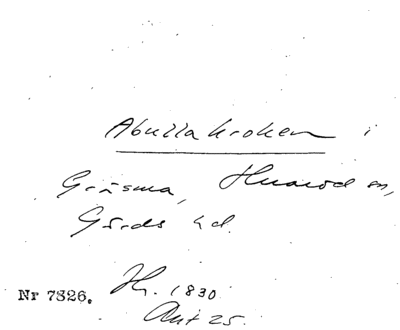 Abullakroken i
Gräsma, Huaröd sn,
Gärds hd.
Nr 7326. Hr. 1830
Akt 25.